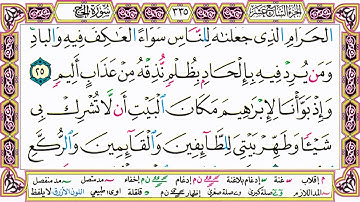 الجزء السابع عشر ٣٣٥ سورة الحج
الْحَرَامِ الَّذِي جَعَلْنَاهُ لِلنَّاسِ سَوَاءً الْعَاكِفُ فِيهِ وَالْبَادِ
وَمَن يُرِدْ فِيهِ بِإِلْحَادٍ بِظُلْمٍ نُّذِقْهُ مِنْ عَذَابٍ أَلِيمٍ ٢٥
وَإِذْ بَوَّأْنَا لِإِبْرَاهِيمَ مَكَانَ الْبَيْتِ أَن لَّا تُشْرِكْ بِي
شَيْئًا وَطَهِّرْ بَيْتِيَ لِلطَّائِفِينَ وَالْقَائِمِينَ وَالرُّكَّعِ